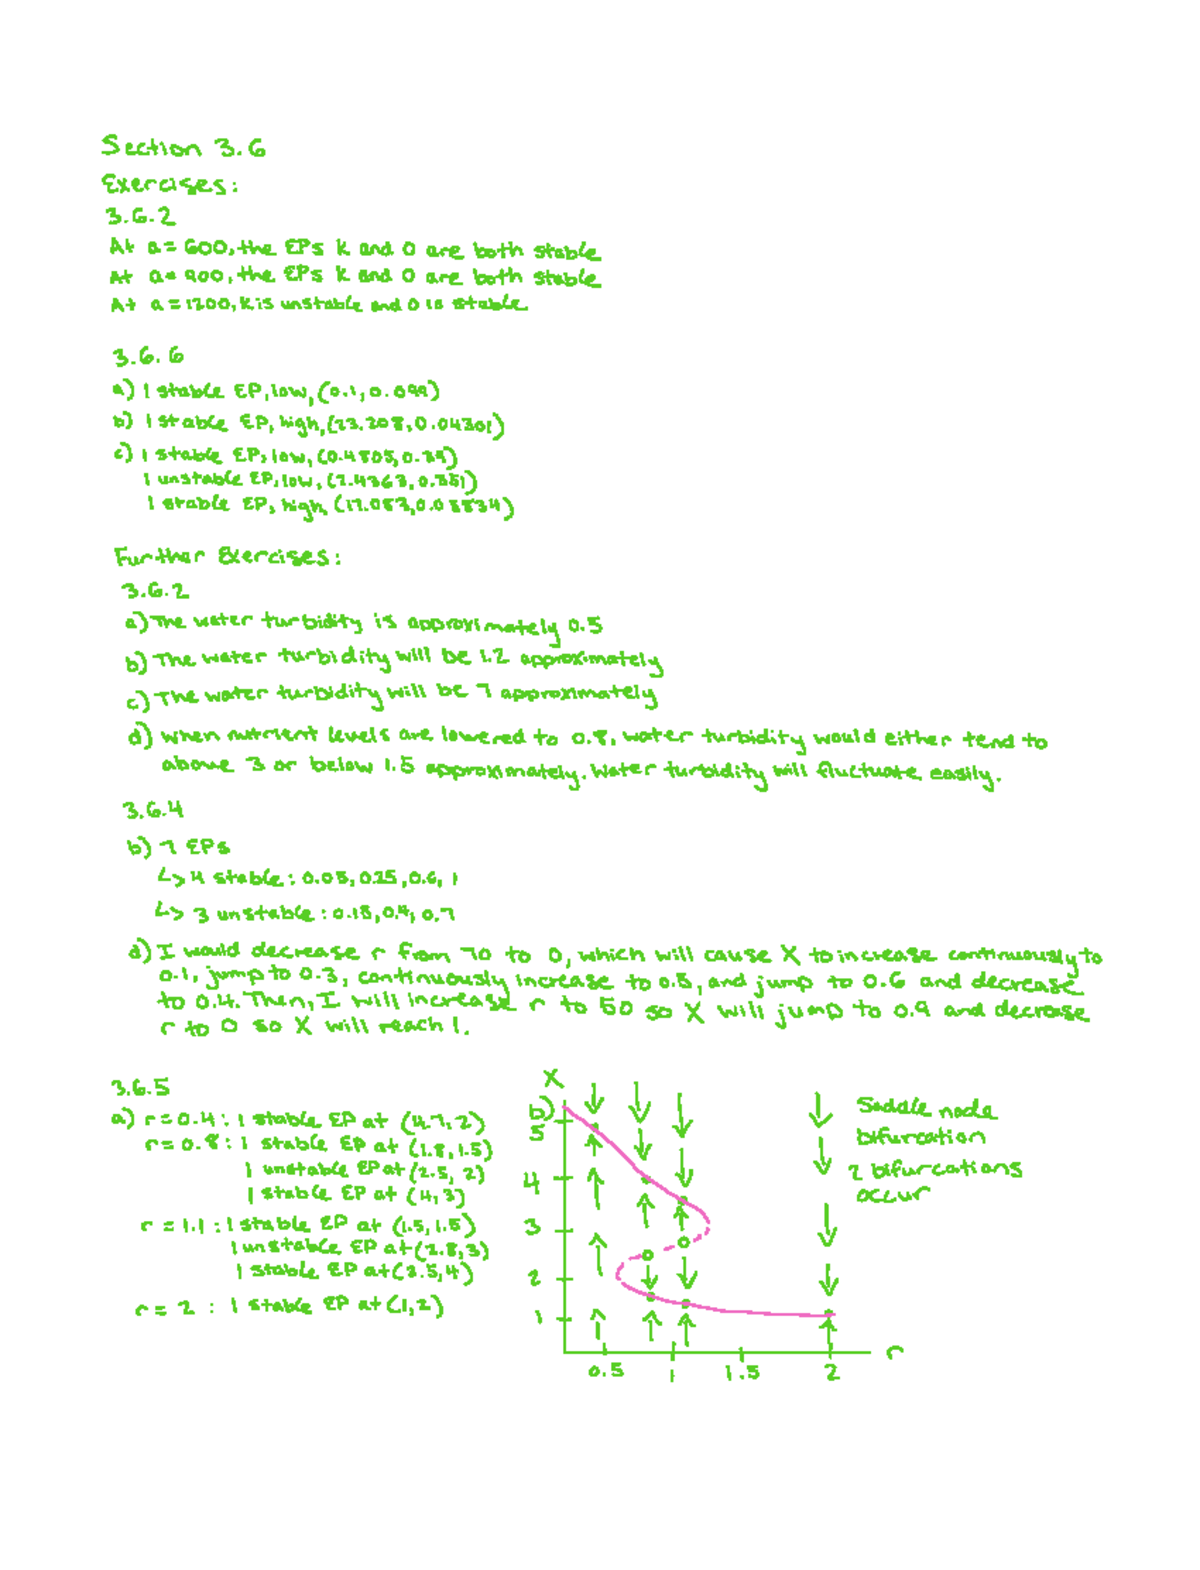 Section 3.6
Exercises:
3.6.2
At a = 600, the EPs k and 0 are both stable
At a = 900, the EPs k and 0 are both stable
At a = 1200, k is unstable and 0 is stable
3.6.6
a) 1 stable EP, low, (0.1, 0.099)
b) 1 stable EP, high, (23.208, 0.04301)
c) 1 stable EP, low, (0.4805, 0.39)
1 unstable EP, low,
1 stable EP, high,
Further Exercises:
3.6.2
a) The water turbidity is approximately 0.5
b) The water turbidity will be 1.2 approximately
c) The water turbidity will be 7 approximately
d) When nutrient levels are lowered to 0.8, water turbidity would either tend to
above 3 or below 1.5 approximately. Water turbidity will fluctuate easily.
3.6.4
b) 7 EPs
↳ 4 stable: 0.05, 0.25, 0.6, 1
↳ 3 unstable: 0.15, 0.4, 0.7
d) I would decrease r from 70 to 0, which will cause X to increase continuously to
0.1, jump to 0.3, continuously increase to 0.5, and jump to 0.6 and decrease
to 0.4. Then, I will increase r to 50 so X will jump to 0.9 and decrase
r to 0 so X will reach 1.
3.6.5
a) r = 0.4: 1 stable EP at (4.7, 2)
r = 0.8: 1 stable EP at (1.8, 1.5)
1 unstable EP at (2.5, 2)
1 stable EP at (4, 3)
r = 1.1: 1 stable EP at (1.5, 1.5)
1 unstable EP at (2.8, 3)
1 stable EP at (3.5, 4)
r = 2: 1 stable EP at (1, 2)
X
b)
5
4
3
2
1
0.5 1 1.5 2
r
Saddle node
bifurcation
2 bifurcations
occur